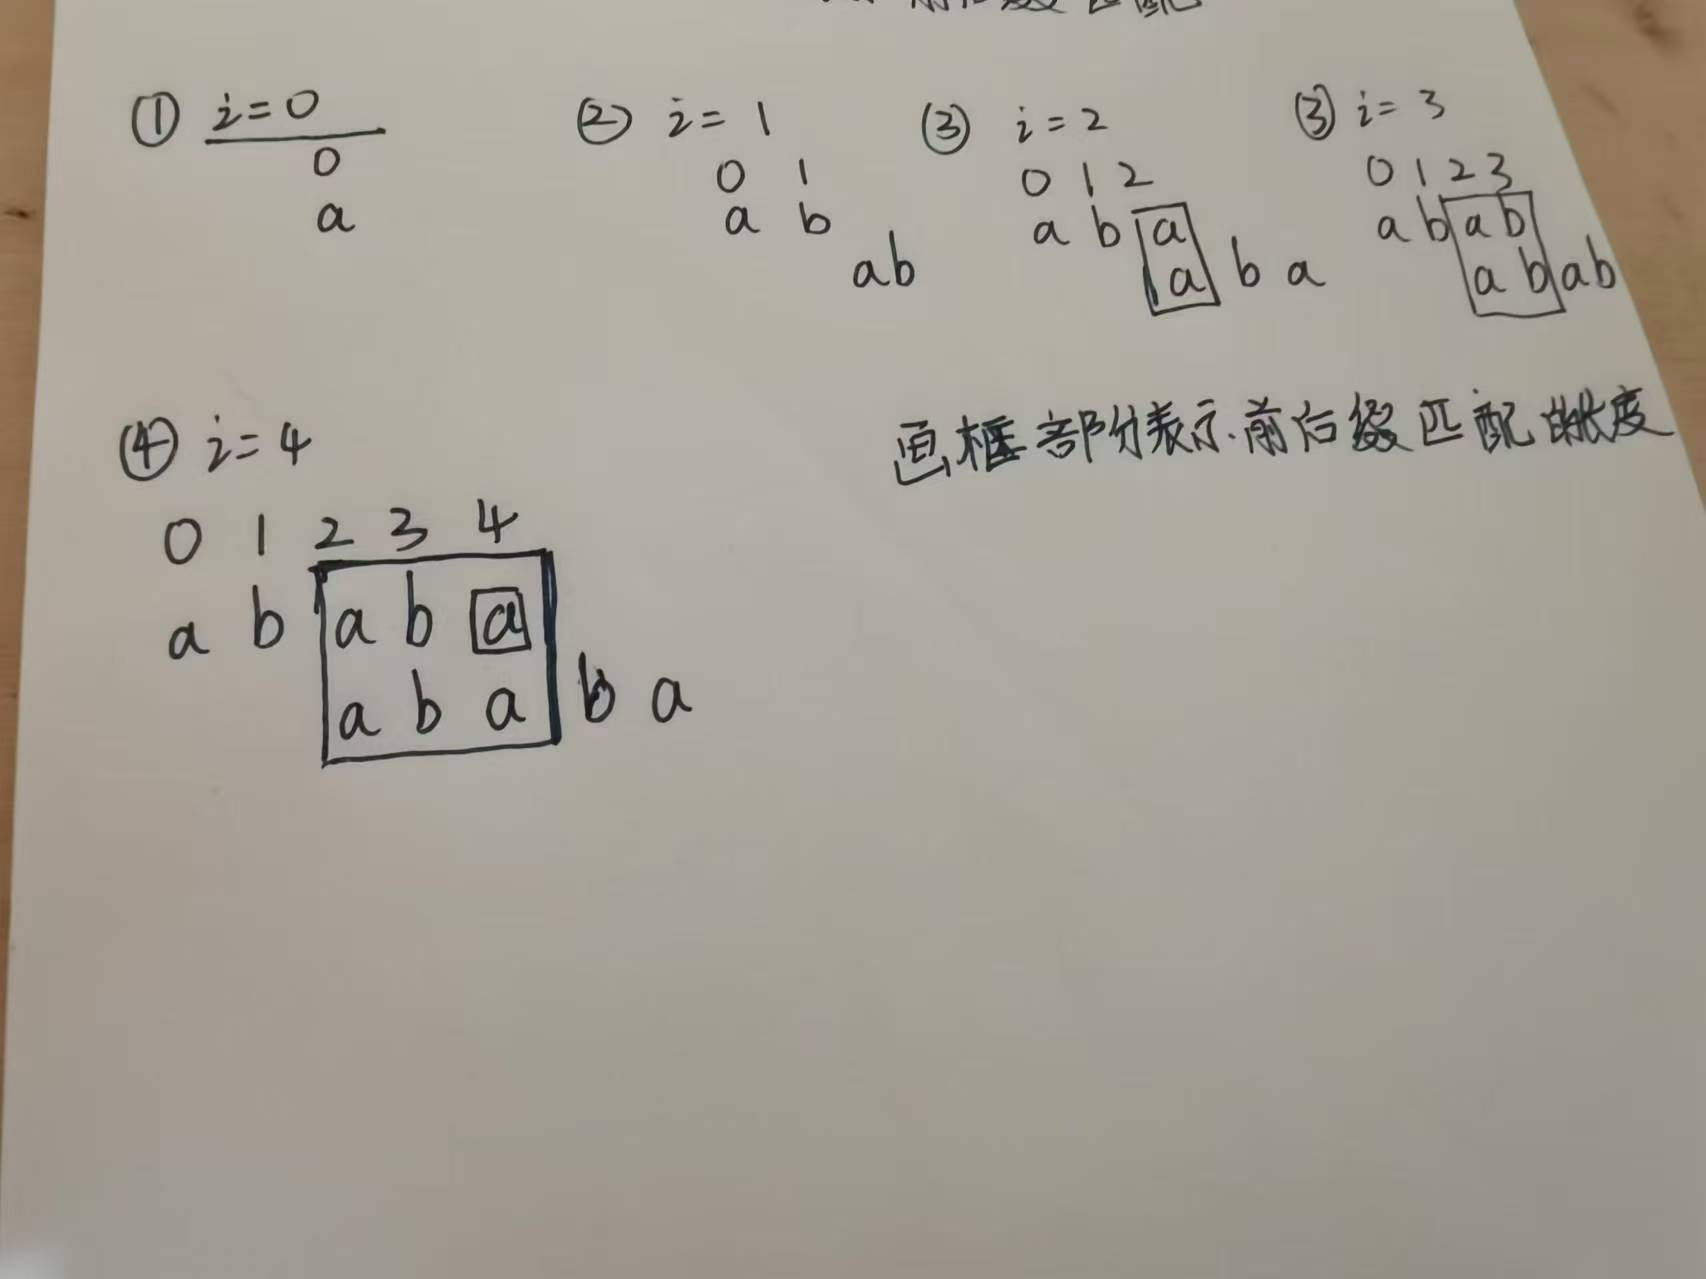 前后缀匹配
① i=0
0
a
② i=1
0 1
a b
ab
③ i=2
0 1 2
a b a
a b a
③ i=3
0 1 2 3
a b a b
a b a b
④ i=4
0 1 2 3 4
a b a b a
a b a b a
画框部分表示前后缀匹配的长度